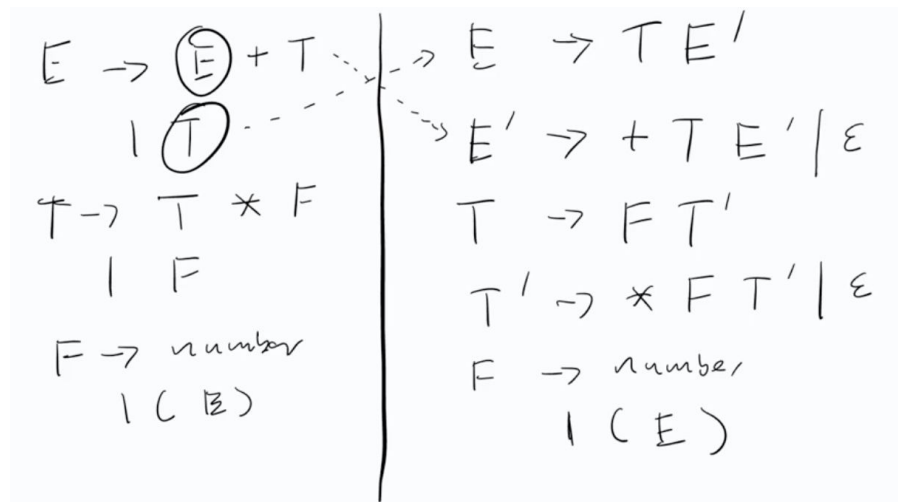 E → E + T
| T
T → T * F
| F
F → number
| ( E )
E → T E'
E' → + T E' | ε
T → F T'
T' → * F T' | ε
F → number
| ( E )